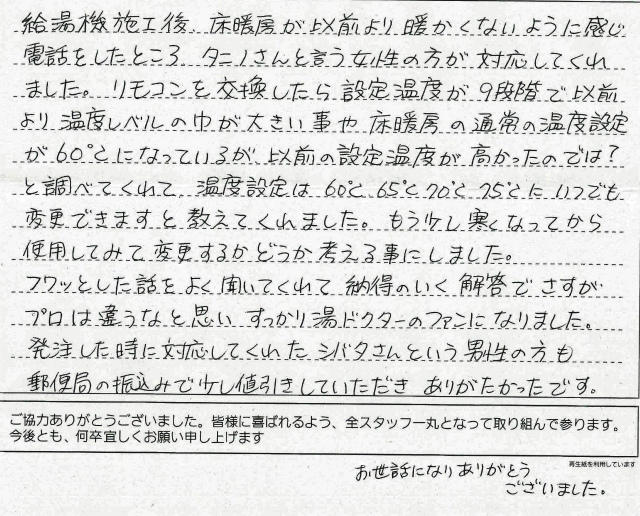 給湯機施工後、床暖房が以前より暖かくないように感じ
電話をしたところ、タニノさんと言う女性の方が対応してくれ
ました。リモコンを交換したら設定温度が9段階で以前
より温度レベルの巾が大きい事や床暖房の通常の温度設定
が60℃になっているが以前の設定温度が高かったのでは?
と調べてくれて、温度設定は60℃ 65℃ 70℃ 75℃にいつでも
変更できますと教えてくれました。もう少し寒くなってから
使用してみて変更するかどうか考える事にしました。
フワッとした話をよく聞いてくれて納得のいく解答でさすが
プロは違うなと思いすっかり湯ドクターのファンになりました。
発注した時に対応してくれたシバタさんという男性の方も
郵便局の振込みで少し値引きしていただきありがたかったです。
ご協力ありがとうございました。皆様に喜ばれるよう、全スタッフ一丸となって取り組んで参ります。
今後とも、何卒宜しくお願い申し上げます
再生紙を利用しています
お世話になりありがとう
ございました。